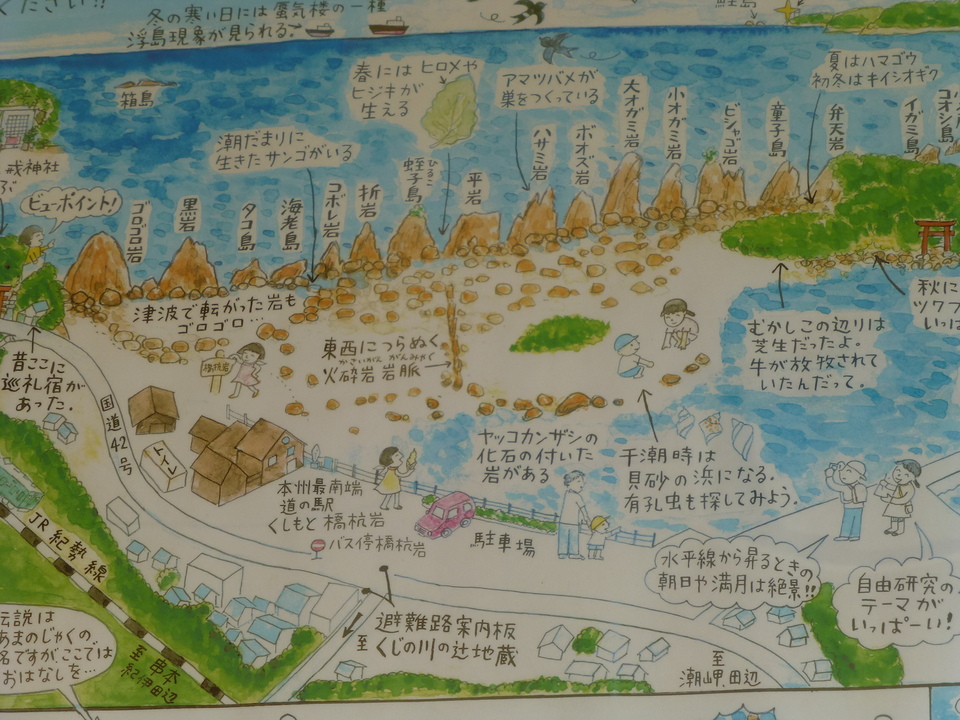 ください!!
冬の寒い日には蜃気楼の一種
浮島現象が見られる。
箱島
春には ヒロメや
ヒジキが
生える
アマツバメが
巣をつくっている
夏はハマゴウ
初冬はキイシオギク
潮だまりに
生きたサンゴがいる
戎神社
ビューポイント!
ゴロゴロ岩
黒岩
タコ島
海老島
コボレ岩
折岩
ひるこ
蛭子島
平岩
ハサミ岩
ボオズ岩
大オガミ岩
小オガミ岩
ビシャゴ岩
童子島
弁天岩
イガミ島
コオシ島
津波で転がった岩も
ゴロゴロ…
昔ここに
巡礼宿が
あった。
橋杭岩
東西につらぬく
かさいがん がんみゃく
火砕岩岩脈
むかしこの辺りは
芝生だったよ。
牛が放牧されて
いたんだって。
秋に
ツワブ
いっぱ
国道42号
トイレ
本州最南端
道の駅
くしもと橋杭岩
バス停橋杭岩
ヤッコカンザシの
化石の付いた
岩がある
干潮時は
貝砂の浜になる。
有孔虫も探してみよう。
駐車場
水平線から昇るときの
朝日や満月は絶景!!
自由研究の
テーマが
いっぱーい!
JR紀勢線
伝説は
あまのじゃくの、
名ですが、ここでは
おはなしを…
至串本
紀伊田辺
至
避難路案内板
くじの川の辻地蔵
至
潮岬、田辺